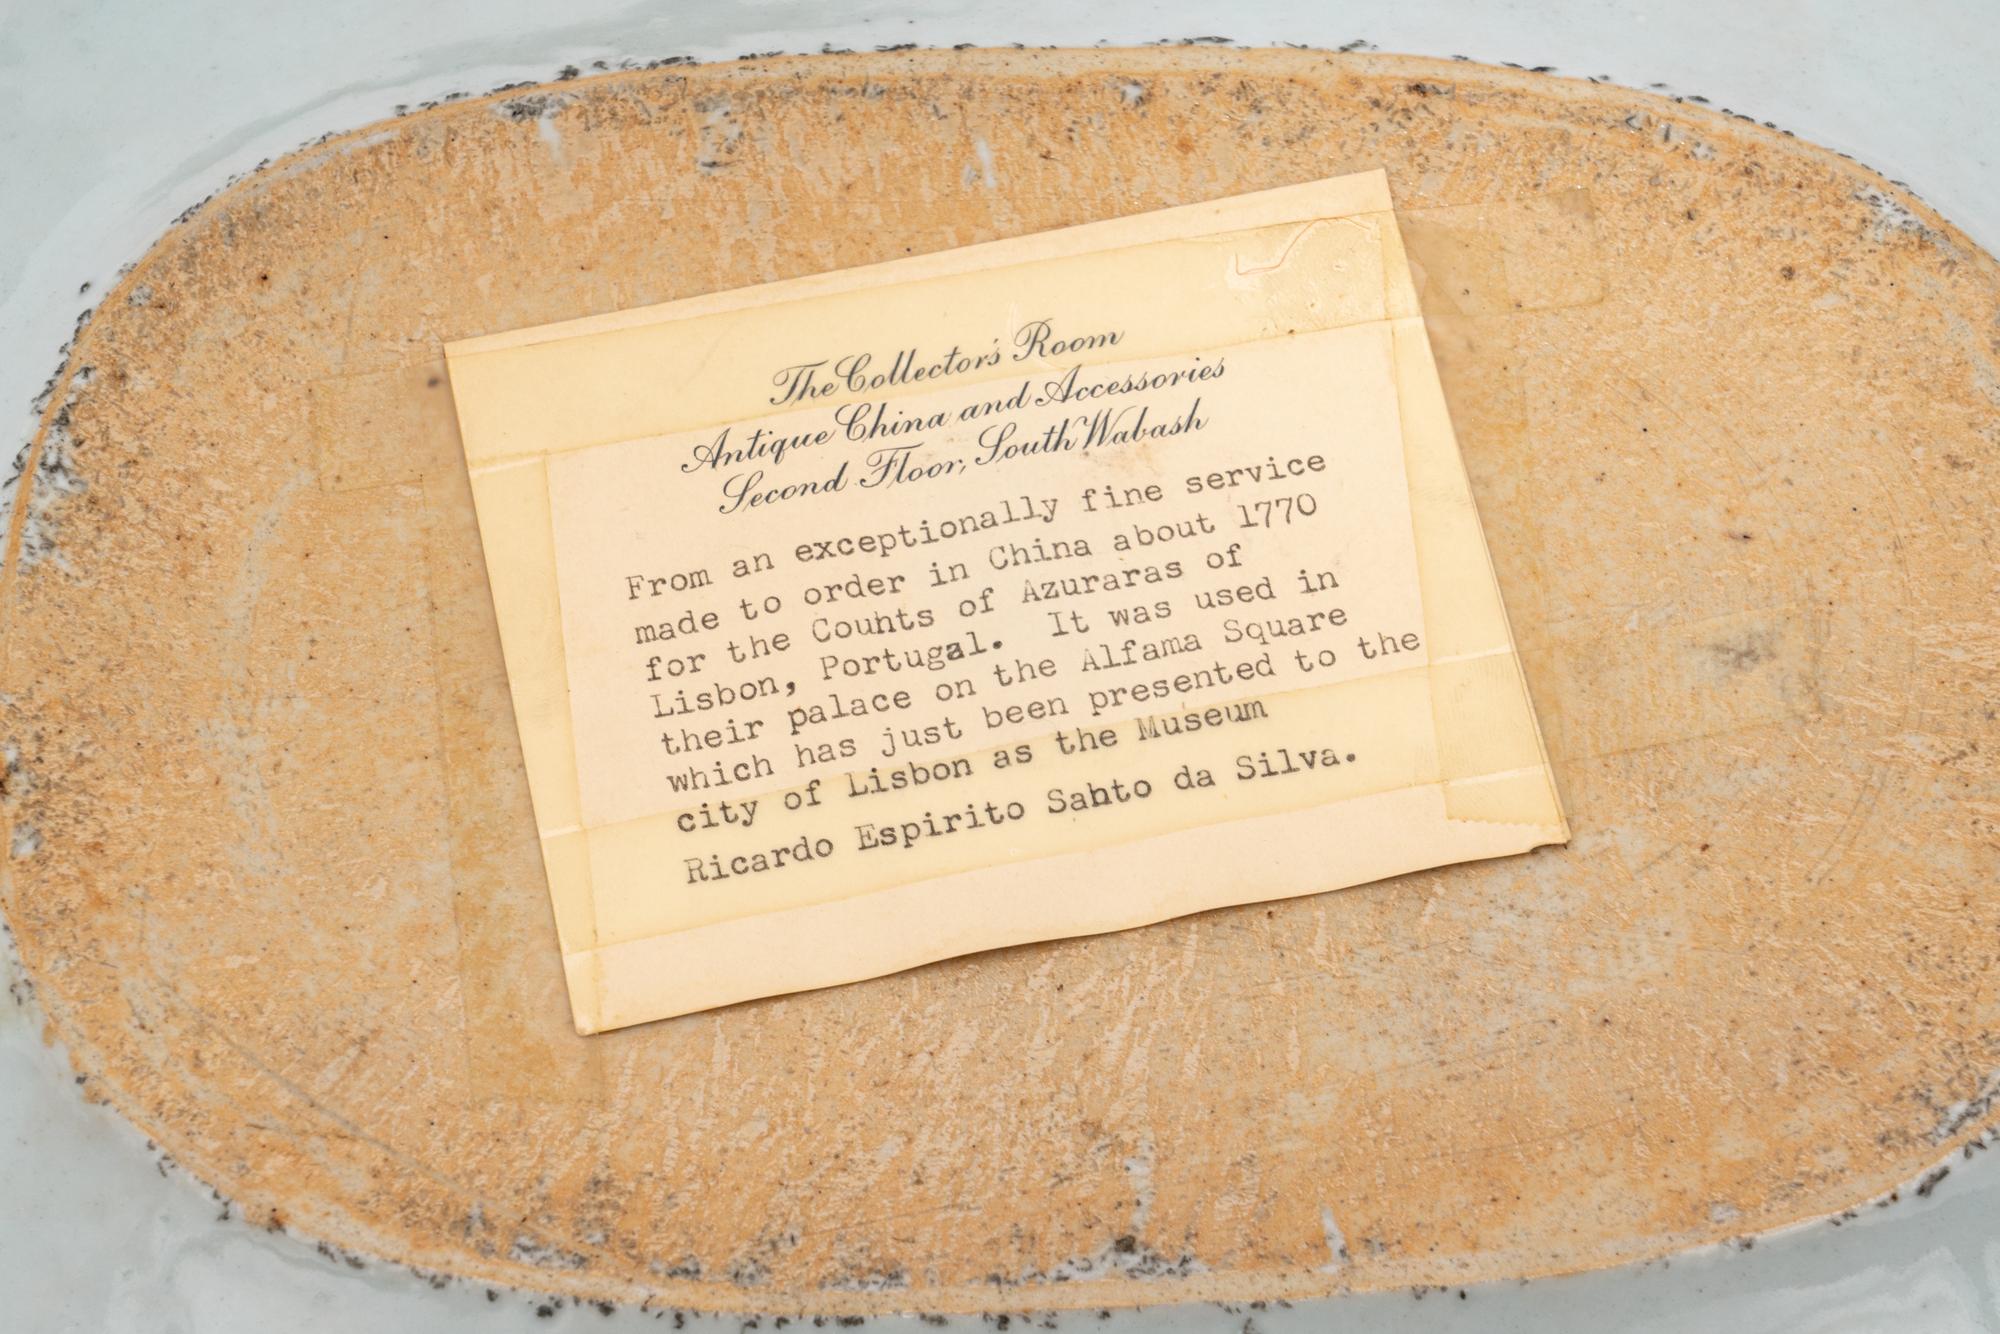 The Collector's Room
Antique China and Accessories
Second Floor, South Wabash
From an exceptionally fine service
made to order in China about 1770
for the Counts of Azuraras of
Lisbon, Portugal. It was used in
their palace on the Alfama Square
which has just been presented to the
city of Lisbon as the Museum
Ricardo Espirito Sahto da Silva.